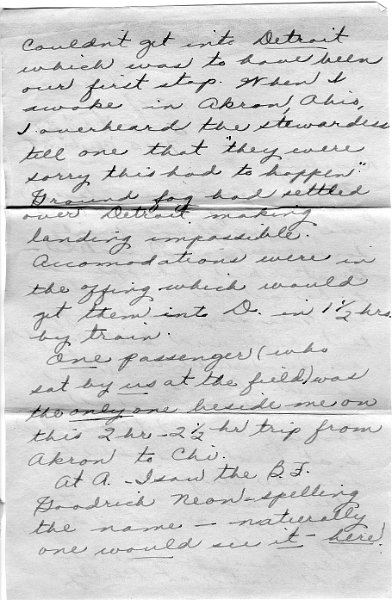 Couldn't get into Detroit
which was to have been
our first stop. When I
awoke in Akron, Ohio,
I overheard the stewardess
tell one that "they were
sorry this had to happen"
Ground fog had settled
over Detroit making
landing impossible.
Accomodations were in
the offing which would
get them into D. in 1 1/2 hrs.
by train.
One passenger (who
sat by us at the field) was
the only one beside me on
this 2 hr - 2 1/2 hr trip from
Akron to Chi.
At A. - I saw the B.F.
Goodrich Neon - spelling
the name - naturally
one would see it - here!